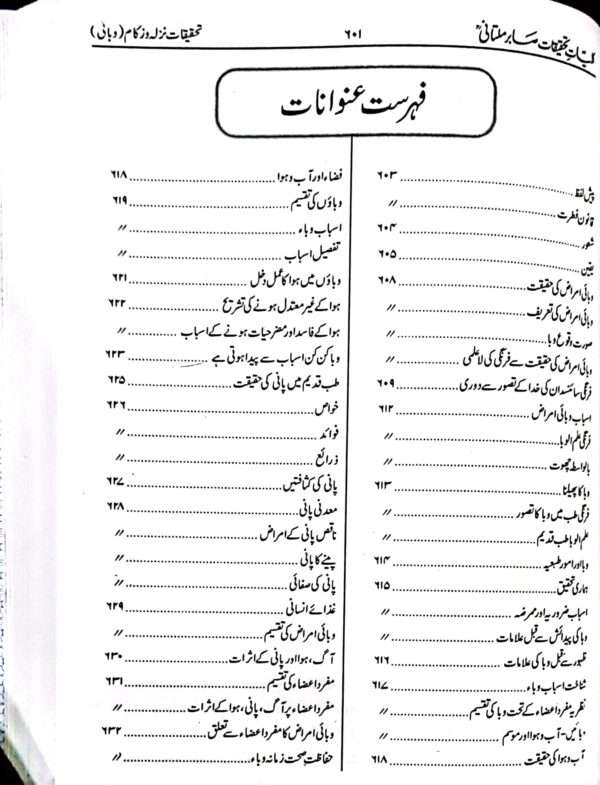 کلیات تحقیقات صابر ملتانی ۶۰۱ تحقیقات نزلہ و زکام (وبائی)
فہرست عنوانات
پیش لفظ ۶۰۳
قانون فطرت //
شعور ۶۰۴
جنین ۶۰۵
وبائی امراض کی حقیقت ۶۰۸
وبائی امراض کی تعریف //
صورت وقوع وبا //
وبائی امراض کی حقیقت سے فرنگی کی لاعلمی //
فرنگی سائنسدان کی خدا کے تصور سے دوری ۶۰۹
اسباب وبائی امراض ۶۱۲
فرنگی علم الوبا //
بالواسطہ چھوت //
وبا کا پھیلنا ۶۱۳
فرنگی طب میں وبا کا تصور //
علم الوبا طب قدیم //
وبا اور امور طبعیہ ۶۱۴
ہماری تحقیق ۶۱۵
اسباب ضروریہ اور ممرضہ //
وبا کی پیدائش سے قبل علامات //
ظہور سے قبل وبا کی علامات ۶۱۶
شناخت اسباب وباء ۶۱۷
نظریہ مفرد اعضاء کے تحت وبا کی تقسیم //
وبائیں - آب و ہوا اور موسم //
آب و ہوا کی حقیقت ۶۱۸
فضاء اور آب و ہوا ۶۱۸
وباؤں کی تقسیم ۶۱۹
اسباب وباء //
تفصیل اسباب //
وباؤں میں ہوا کا عمل دخل ۶۲۱
ہوا کے غیر معتدل ہونے کی تشریح ۶۲۲
ہوا کے فاسد اور مضر حیات ہونے کے اسباب //
وبا کن کن اسباب سے پیدا ہوتی ہے ۶۲۳
طب قدیم میں پانی کی حقیقت ۶۲۵
خواص ۶۲۶
فوائد //
ذرائع //
پانی کی کثافتیں ۶۲۷
معدنی پانی ۶۲۸
ناقص پانی کے امراض //
پینے کا پانی //
پانی کی صفائی //
غذائے انسانی ۶۲۹
وبائی امراض کی تقسیم //
آگ، ہوا اور پانی کے اثرات ۶۳۰
مفرد اعضاء کی تقسیم ۶۳۱
مفرد اعضاء پر آگ، پانی، ہوا کے اثرات //
وبائی امراض کا مفرد اعضاء سے تعلق ۶۳۲
حفاظت صحت زمانہ وباء //